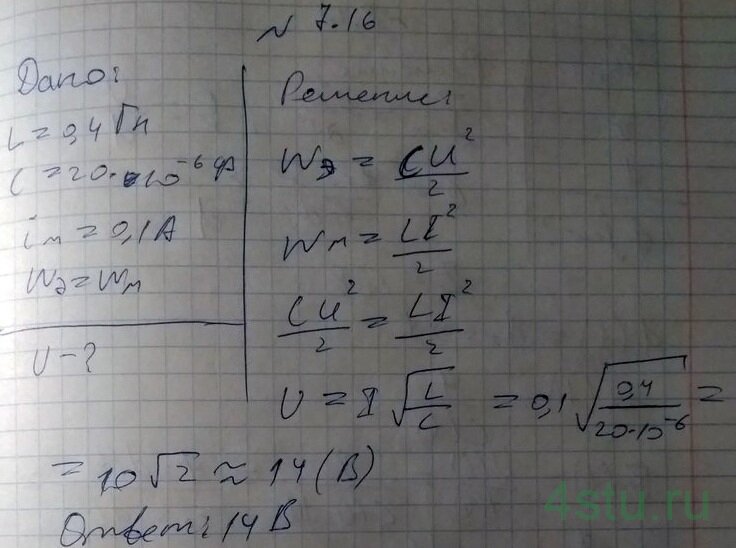 N 7.16
Дано:
L = 0,4 Гн
C = 20·10⁻⁶ Ф
iₘ = 0,1 А
Wэ = Wм
U - ?
Решение:
Wэ = CU²/2
Wм = LI²/2
CU²/2 = LI²/2
U = I√(L/C) = 0,1√(0,4/(20·10⁻⁶)) =
= 10√2 ≈ 14 (В)
Ответ: 14 В
4stu.ru